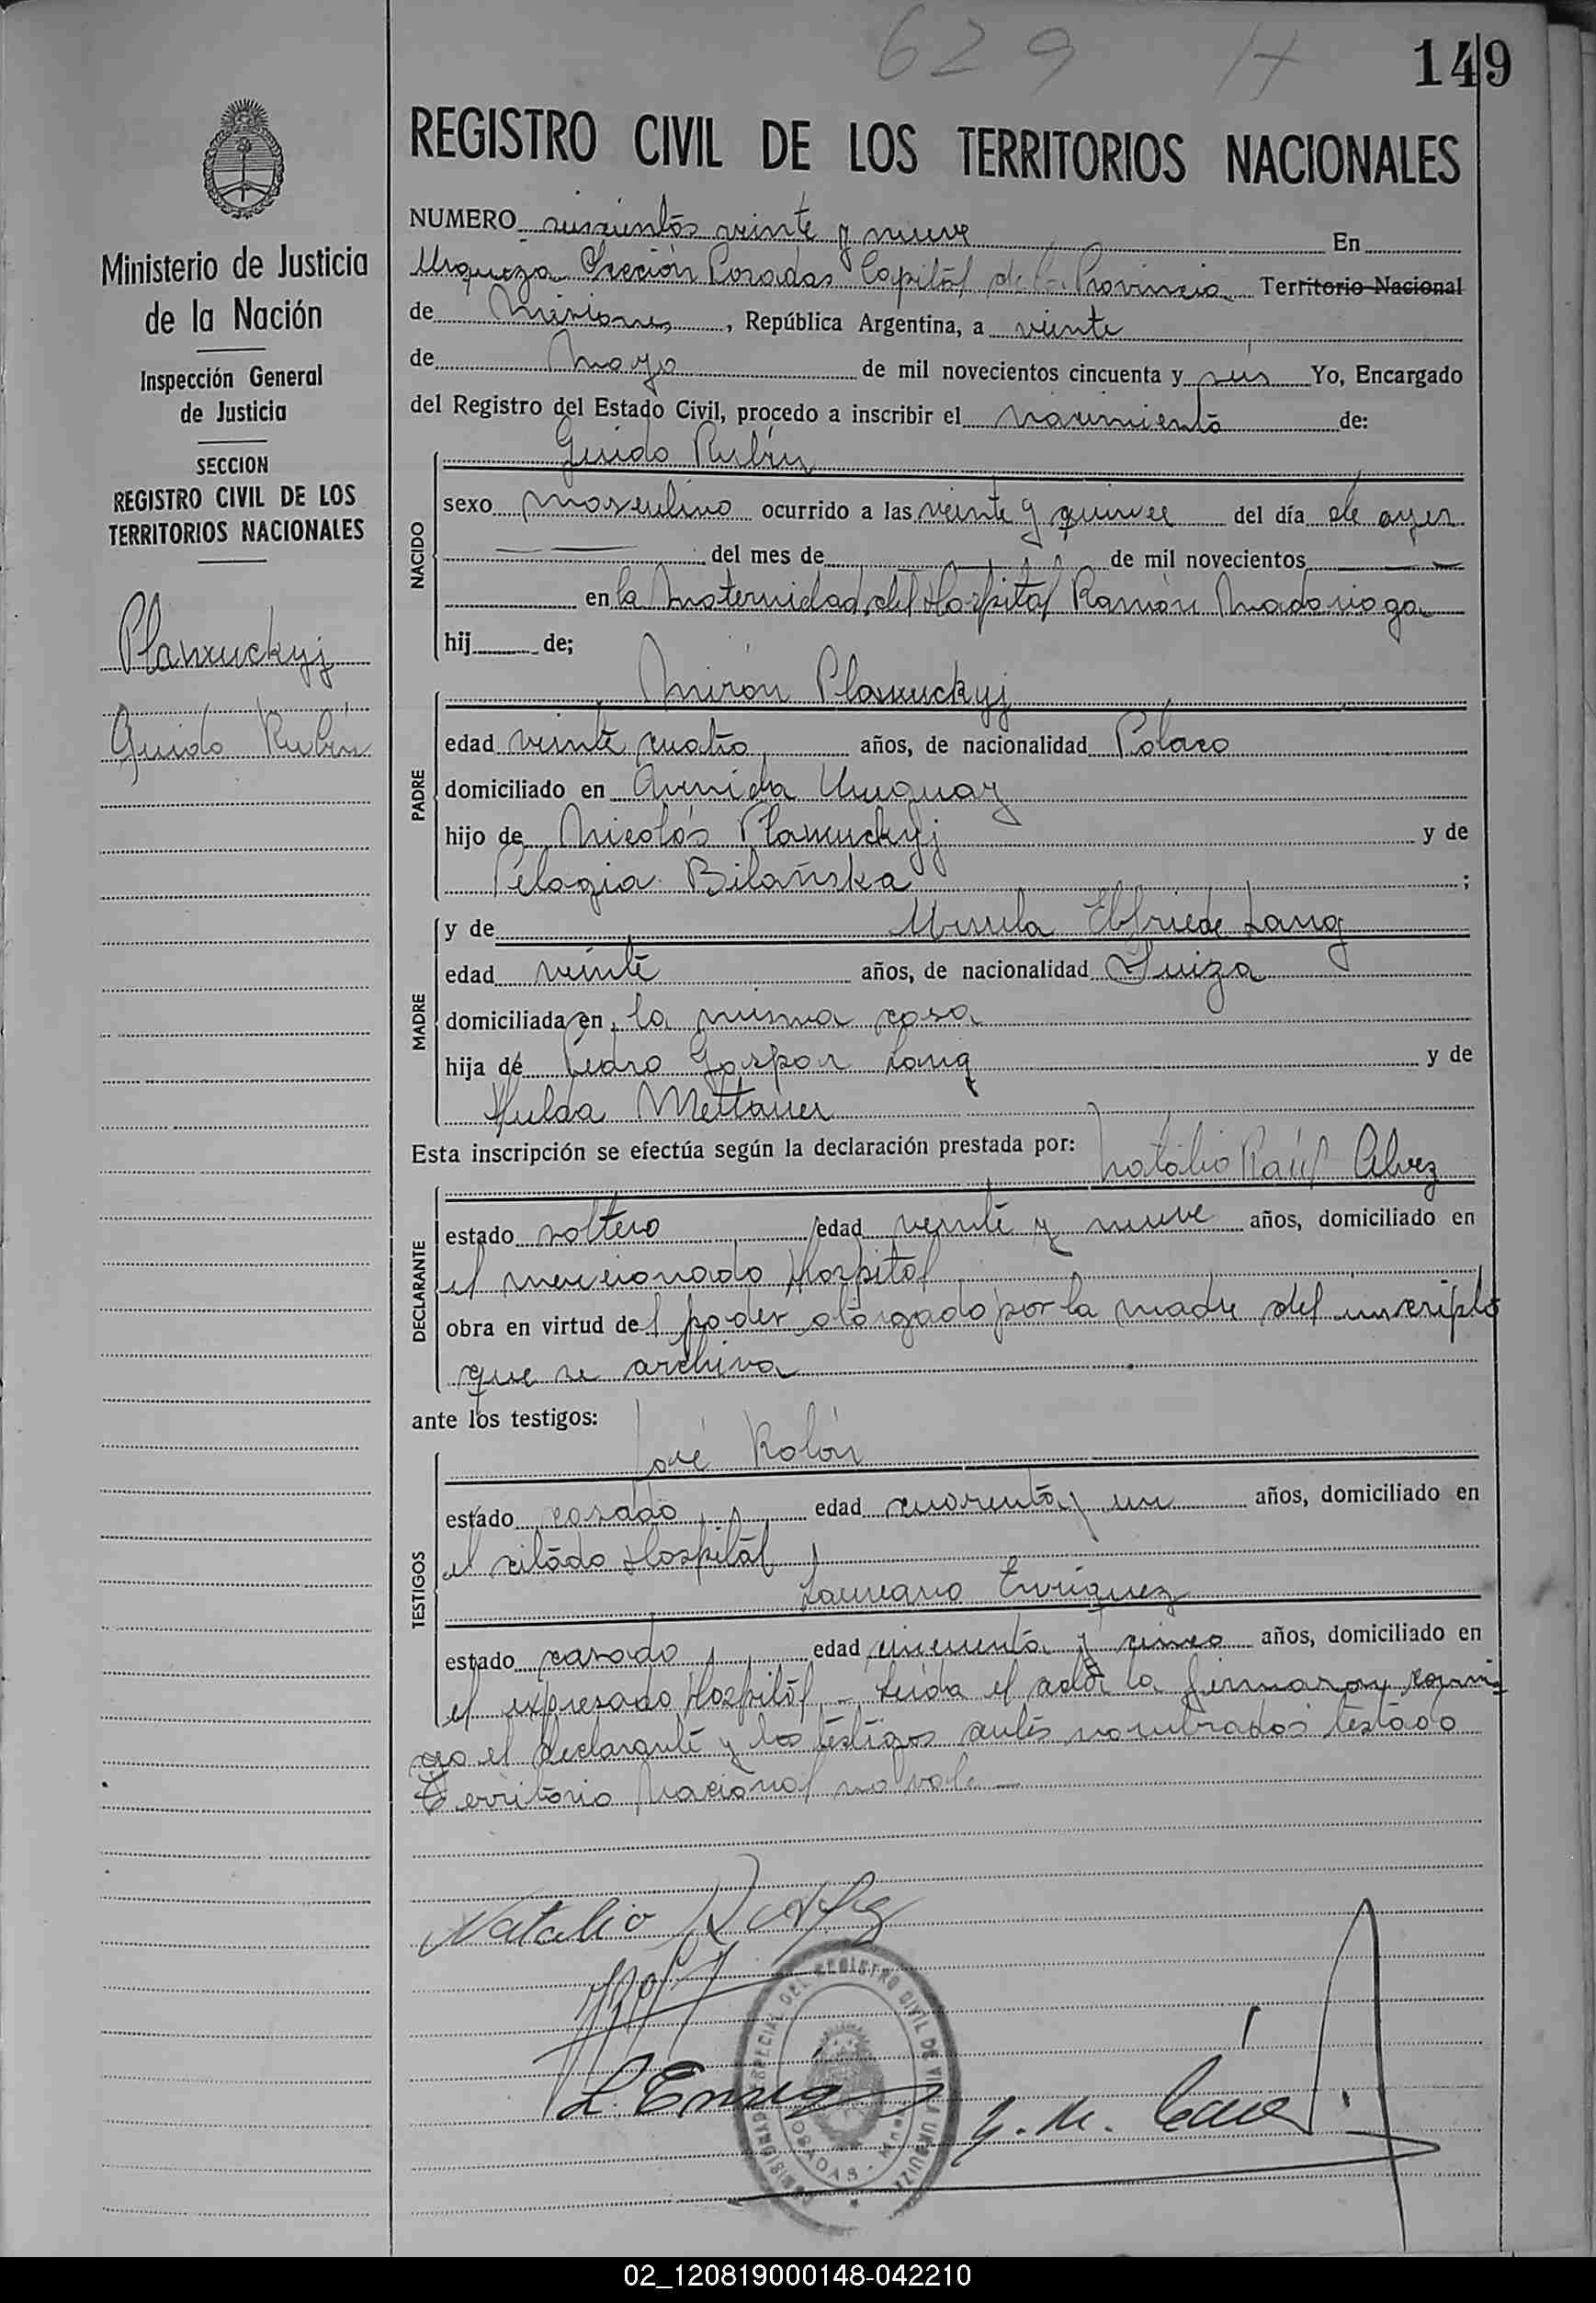 629 H
149
REGISTRO CIVIL DE LOS TERRITORIOS NACIONALES
Ministerio de Justicia
de la Nación
Inspección General
de Justicia
SECCION
REGISTRO CIVIL DE LOS
TERRITORIOS NACIONALES
Guido Rubén
NUMERO seiscientos veinte y nueve En
Urquiza Sección Posadas Capital de la Provincia Territorio Nacional
de Misiones, República Argentina, a veinte
de Mayo de mil novecientos cincuenta y seis Yo, Encargado
del Registro del Estado Civil, procedo a inscribir el nacimiento de:
Guido Rubén
NACIDO
sexo masculino ocurrido a las veinte y quince del día de ayer
del mes de de mil novecientos
en la Maternidad del Hospital Ramón Madariaga
hij de;
Mirón
PADRE
edad veinte cuatro años, de nacionalidad Polaco
domiciliado en Avenida Uruguay
hijo de Nicolás y de
Pelagia Bilañska ;
MADRE
y de Ursula Elfriede Lang
edad veinte años, de nacionalidad Suiza
domiciliada en la misma casa
hija de Pedro Gaspar Lang y de
Hulda Mettauer
Esta inscripción se efectúa según la declaración prestada por: Natalio Raúl Alvez
DECLARANTE
estado soltero edad veinte y nueve años, domiciliado en
el mencionado Hospital
obra en virtud del poder otorgado por la madre del inscripto
que se archiva
ante los testigos:
José Rolón
TESTIGOS
estado casado edad cuarenta y un años, domiciliado en
el citado Hospital
Laureano Enriquez
estado casado edad cincuenta y cinco años, domiciliado en
el expresado Hospital - Leída el acta la firmaron conmi
go el declarante y los testigos antes nombrados testado
Territorio Nacional no vale -
Natalio R Alvez
L. Enriq
COMISIONADO ESPECIAL DEL REGISTRO CIVIL DE VILLA URQUIZA
POSADAS - Mnes
02_120819000148-042210